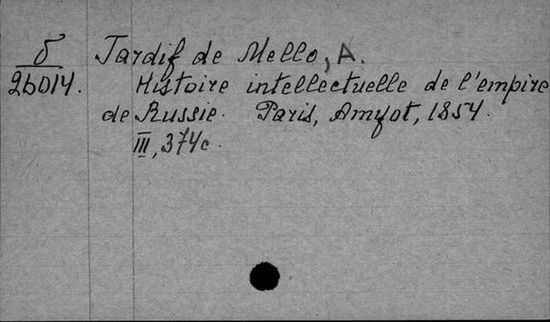 б Tardif de Mello, A.
26014. Histoire intellectuelle de l'empire
de Russie. Paris, Amyot, 1854.
III, 374c.